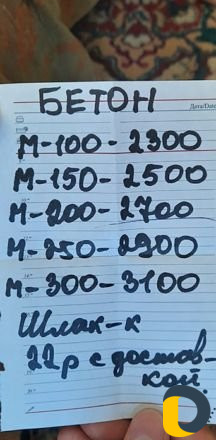 Дата/Date
БЕТОН
М-100-2300
М-150-2500
М-200-2700
М-250-2900
М-300-3100
Шлак-к
22р с достав-
кой.